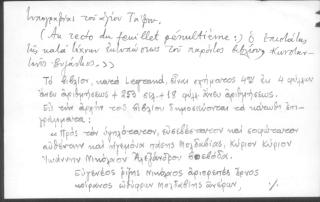 ὑπογραφίας τοῦ ἁγίου Τάφου.
(Au recto du feuillet pénultième:) ὁ ἐπιστάτης
τῆς κατὰ τέχνην ἐκτυπώσεως τοῦ παρόντος βιβλίου Κωνσταν-
τῖνος Βυζάντιος.>>
Τὸ βιβλίον, κατὰ Legrand, εἶναι σχήματος 4ον ἐκ 4 φύλλων
ἄνευ ἀριθμήσεως + 250 σελ. + 18 φύλλ. ἄνευ ἀριθμήσεως.
Εἰς τὴν ἀρχὴν τοῦ βιβλίου δημοσιεύονται τὰ κάτωθι ἐπι-
γράμματα:
«Πρὸς τὸν ὑψηλότατον, εὐσεβέστατον καὶ σοφώτατον
αὐθέντην καὶ ἡγεμόνα πάσης Μολδαβίας, Κύριον Κύριον
Ἰωάννην Μιχάλον Ἀλεξάνδρου βοεβόδα.
Εὐγενέος ῥίζης ἀριπρεπὲς ἔρνος
κοίρανος Μολδαβίης